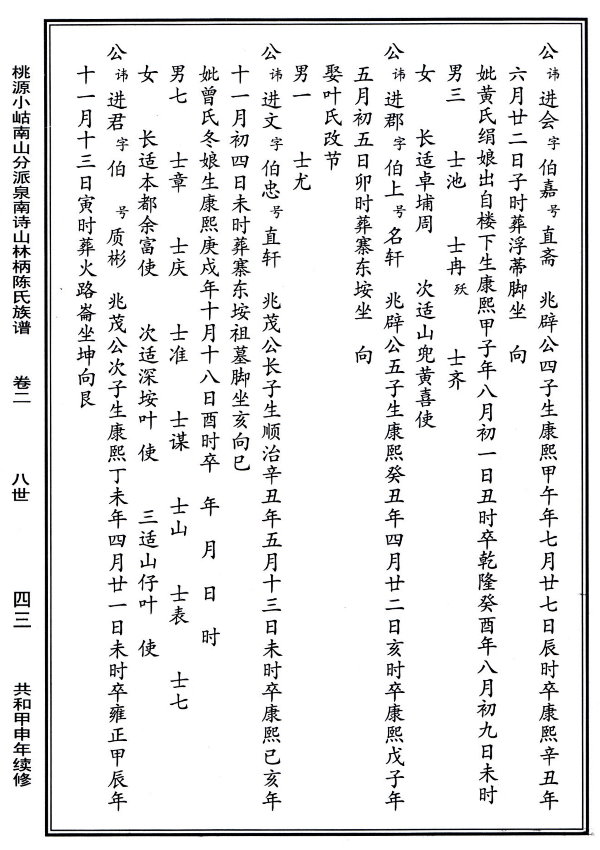 公 讳 进会 字 伯嘉 号 直斋 兆辟公四子生康熙甲午年七月廿七日辰时卒康熙辛丑年
六月廿二日子时葬浮蒂脚坐 向
妣黄氏绢娘出自楼下生康熙甲子年八月初一日丑时卒乾隆癸酉年八月初九日未时
男三 士池 士冉 殀 士齐
女 长适卓埔周 次适山兜黄喜使
公 讳 进郡 字 伯上 号 名轩 兆辟公五子生康熙癸丑年四月廿二日亥时卒康熙戊子年
五月初五日卯时葬寨东垵坐 向
娶叶氏改节
男一 士尤
公 讳 进文 字 伯忠 号 直轩 兆茂公长子生顺治辛丑年五月十三日未时卒康熙已亥年
十一月初四日未时葬寨东垵祖墓脚坐亥向巳
妣曾氏冬娘生康熙庚戌年十月十八日酉时卒 年 月 日 时
男七 士章 士庆 士准 士谋 士山 士表 士七
女 长适本都余富使 次适深垵叶 使 三适山仔叶 使
公 讳 进君 字 伯 号 质彬 兆茂公次子生康熙丁未年四月廿一日未时卒雍正甲辰年
十一月十三日寅时葬火路崙坐坤向艮
桃源小岵南山分派泉南诗山林柄陈氏族谱 卷二 八世 四三 共和甲申年续修